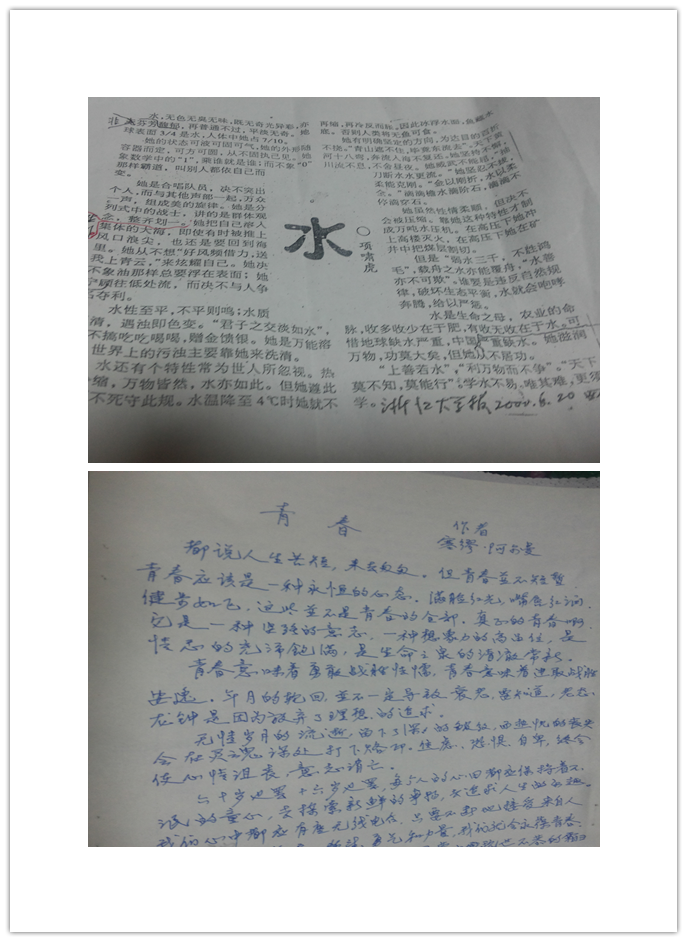 水,无色无臭无味,既无奇光异彩,亦
非 无芬芳馥郁,再普通不过,平淡无奇。
球表面3/4是水,人体中她占7/10。
她的状态可液可固可气,她的外形随
容器而定,可方可圆,从不固执己见。她
象数学中的"1",乘谁就是谁;而不象"0"
那样霸道,叫别人都依自己而
变。
她是合唱队员,决不突出
个人,而与其他声部一起,万众
一声,组成美的旋律。她是分
列式中的战士,讲的是群体观
念,整齐划一。她把自己溶入
集体的大海,即使有时被推上
风口浪尖,也还是要回到海
里。她从不想"好风频借力,送
我上青云,"来炫耀自己。她决
不象油那样总要浮在表面;她
宁愿往低处流,而决不与人争
名夺利。
水性至平,不平则鸣;水质
清,遇浊即色变。"君子之交淡如水",
不搞吃吃喝喝,赠金馈银。她是万能溶
世界上的污浊主要靠她来洗清。
水还有个特性常为世人所忽视。热
缩,万物皆然,水亦如此。但她遵此
不死守此规。水温降至4℃时她就不
水
○项啸虎
再缩,再冷反而胀,因此冰浮水面,鱼藏水
底。否则人类将无鱼可食。
她有明确坚定的方向,为达目的百折
不挠。"青山遮不住,毕竟东流去。"天下黄
河十八弯,奔流入海不复还。她坚持不懈,
川流不息,不舍昼夜。她藏武不始结,"抽
刀断水水更流。"她坚忍不拔,
柔能克刚。"金以刚折,水以柔
全。"滴滴檐水滴阶石,滴滴不
停滴穿石。
她虽然性情柔顺,但决不
会被压缩。靠她这种特性才制
成万吨水压机。在高压下她冲
上高楼灭火,在高压下她在矿
井中把煤层割切。
但是"弱水三千,不胜鸿
毛",载舟之水亦能覆舟,"水善
亦不可欺"。谁要是违反自然规
律,破坏生态平衡,水就会咆哮
奔腾,给以严惩。
水是生命之母,农业的命
脉,收多收少在于肥,有收无收在于水。可
惜地球缺水严重,中国严重缺水。她滋润
万物,功莫大矣,但她从不居功。
"上善若水","利万物而不争"。"天下
莫不知,莫能行"。学水不易,唯其难,更须
学。浙江大学报2000.6.20
青春
作者
塞缪·阿尔曼
都说人生苦短,来去匆匆。但青春并不短暂
青春应该是一种永恒的心态。满脸红光,嘴唇红润,
健步如飞,这些并不是青春的全部。真正的青春啊,
它是一种坚强的意志,一种想象力的高出位,是
情感的充沛饱满,是生命之泉的清澈常新。
青春意味着勇敢战胜怯懦,青春意味着进取战胜
安逸。年月的轮回,并不一定导致衰老,要知道,老态
龙钟是因为放弃了理想的追求。
无情岁月的流逝,留下了深深的皱纹,而热忱的丧失
会在灵魂深处打下烙印。焦虑、恐惧、自卑,终会
使心情沮丧,意志消亡。
六十岁也罢,十六岁也罢,每个人的心田都应保持着不
泯的童心,去探索新鲜的事物,去追求人生的乐趣。
我们心中都应有座无线电台,只要不断地接受来自人